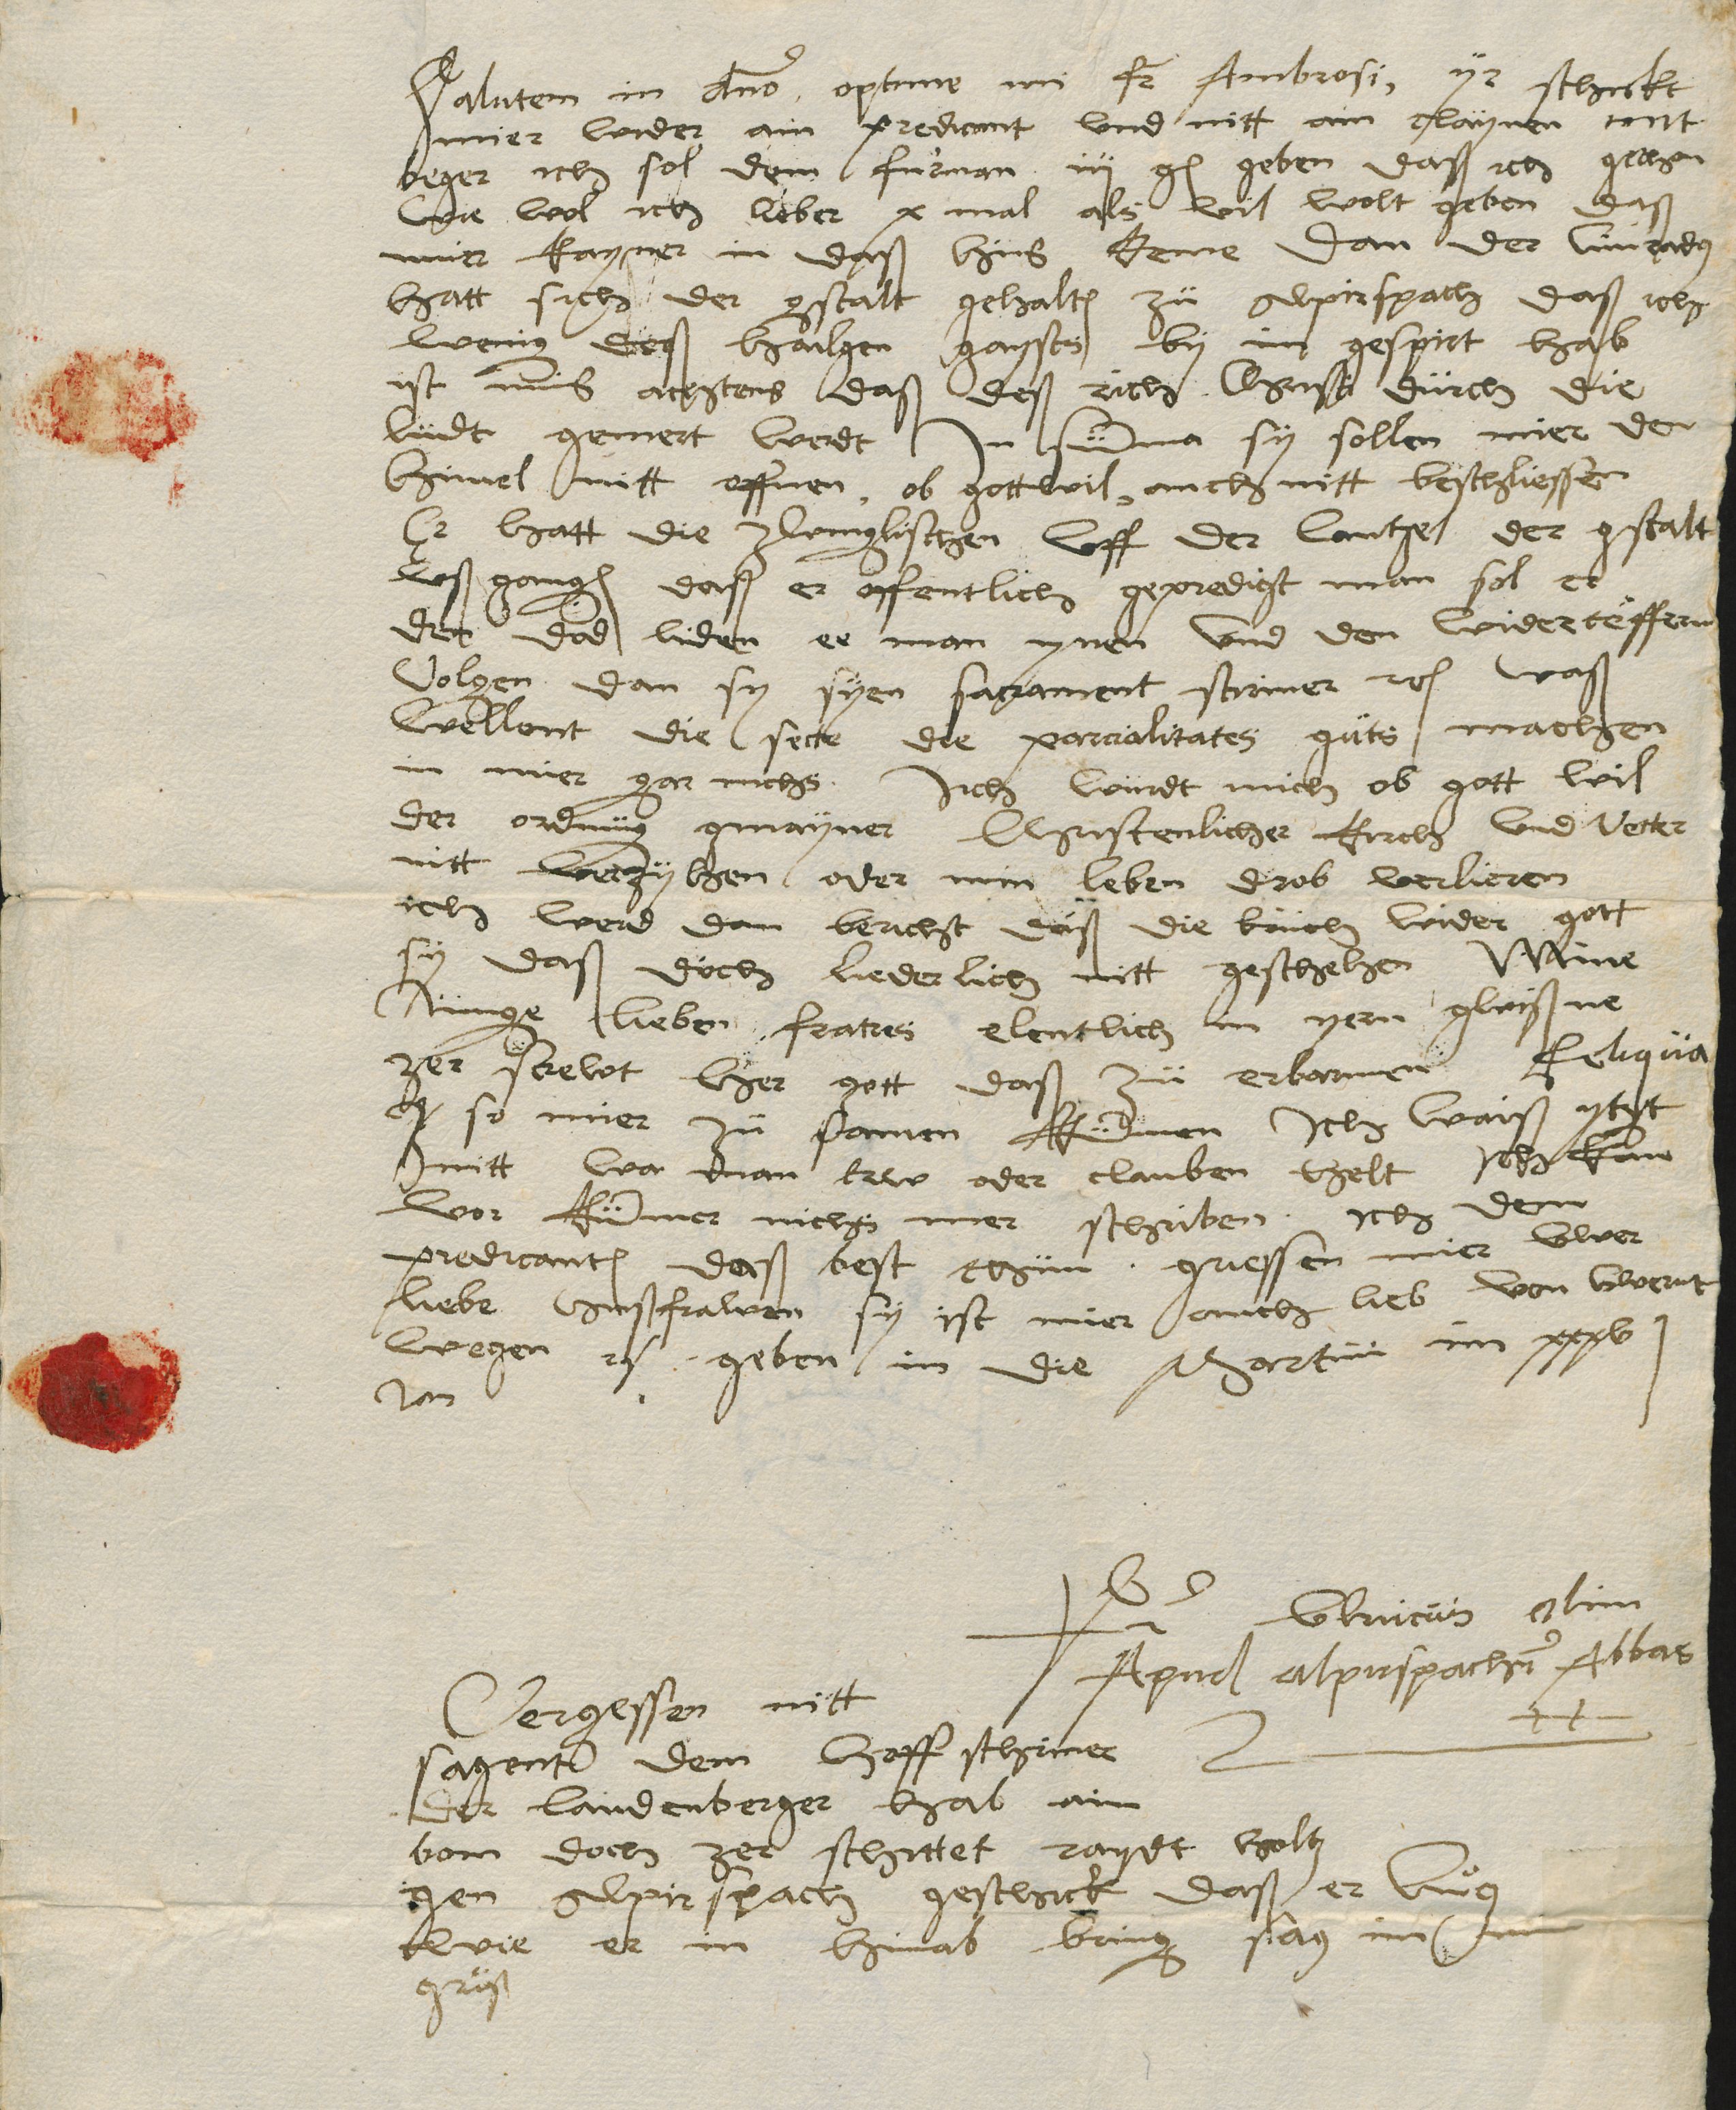 Salutem in dno optime mi fr Ambrosi, yr schickt
mier wider ain predicant und nitt ain claynen
beger ich sol dem furman iii gl geben daß ich gethon
wie wol ich lieber x mal als vil wolt geben daß
mier kayner in daß huß keme dan der Cunradus
hatt sich der gstalt gehalten zu alpirspach daß ich
wenig deß hailgen gaysts by im gespirt hab
ist mins achtens daß deß rich Christi durch die
lüdt gemert werdt In suma sy sollen mier den
himel nitt offnen, ob gott wil, auch nitt beschliessen
Er hatt die zwinglischen uff der Cantzel der gstalt
ußgangen daß er offentlich gepredigt man sol ee
den dod liden ee man ynen und den widerteuffern
Volgen dan sy syen sacrament schimer waß
wellent die secte die parcialitates guts machen
in mier gar nichs. Ich wurdt mich ob gott wil
der ordnung gmayner Christenlicher kirch und Vetter
nitt verzyhen oder min leben drob verlieren
ich werd dan bericht daß die kirch wider gott
sy daß doch liederlich nitt geschehen Mine
Junge lieben fratres elentlich in yern gwißne
zer strewt her gott daß zu erbarmen Reliqua
so mier zu samen kumen Ich waiß ytzt
nitt wa man trw oder clauben helt Ich kan
vor kumer nichs mer schriben. Ich dem
predicanten daß best thun. griessen mier uwer
liebe hußfrawen sy ist mier auch lieb von uwernt
wegen geben in die Martini im xxxv
Jar
Ulricus olim
Apud alpirspachum Abbas
Vergessen nitt
sagent dem hoffschriner
der landenberger hab ain
bom doch zer schittet raydt holtz
gen alpirspach geschick daß er lug
wie er in hinab bring sag im min
gruß